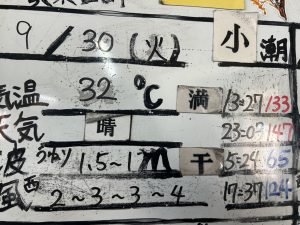 9/30(火) 小潮
気温 32℃ 満 13:27 133
天気 晴 23:09 147
波 うねり 1.5~1m 干 5:24 65
風 西 2~3~3~4 17:37 124